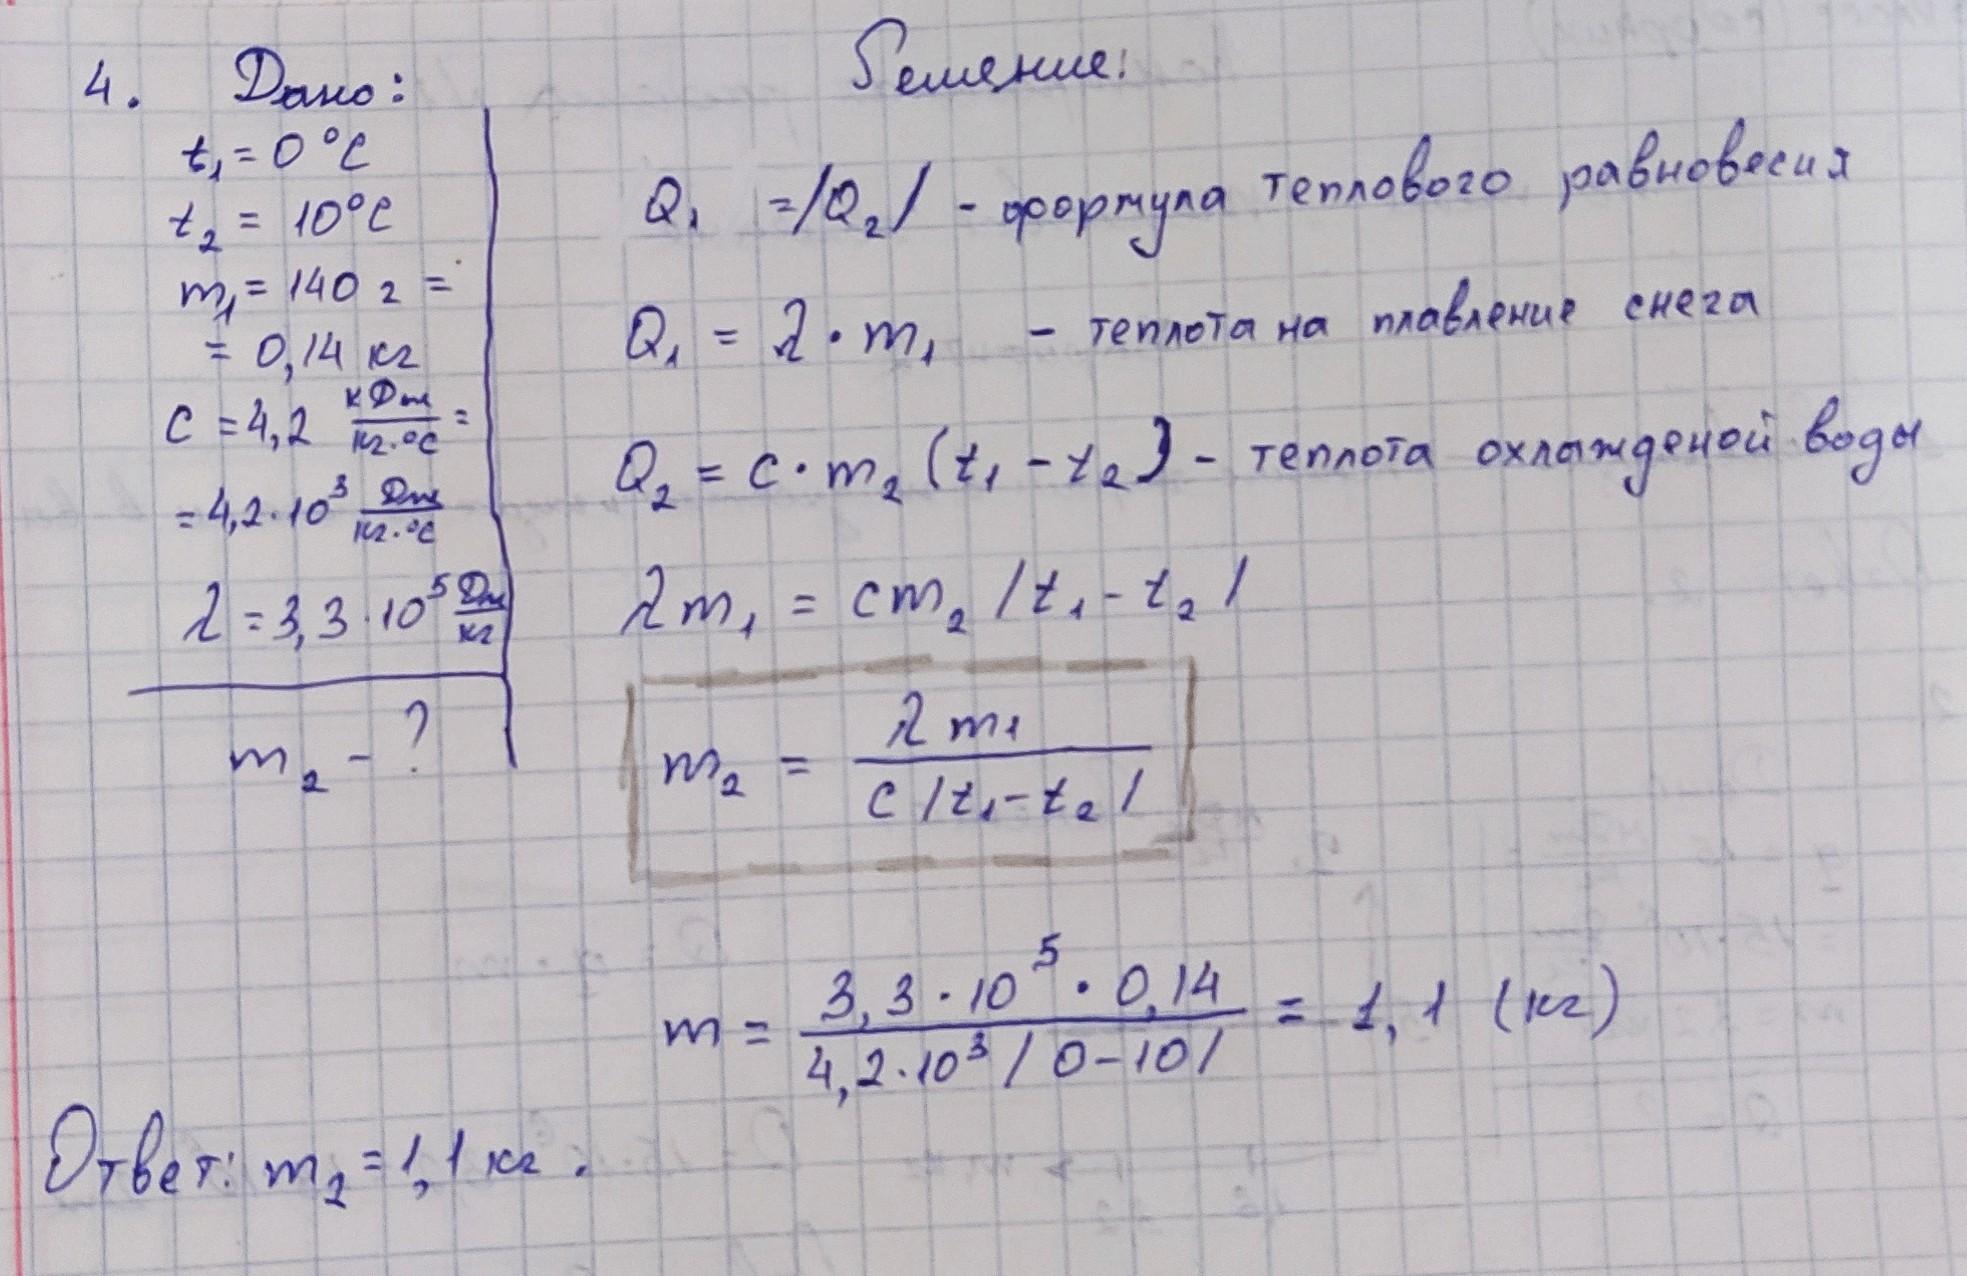 4. Дано:
t₁ = 0 °C
t₂ = 10°C
m₁ = 140 г =
= 0,14 кг
c = 4,2 кДж/кг·°C =
= 4,2·10³ Дж/кг·°C
λ = 3,3·10⁵ Дж/кг
m₂ - ?
Решение:
Q₁ = |Q₂| - формула теплового равновесия
Q₁ = λ·m₁ - теплота на плавление снега
Q₂ = c·m₂ (t₁ - t₂) - теплота охлажденой воды
λm₁ = cm₂ |t₁ - t₂|
m₂ = λm₁ / c|t₁ - t₂|
m = 3,3·10⁵·0,14 / 4,2·10³|0-10| = 1,1 (кг)
Ответ: m₂ = 1,1 кг.